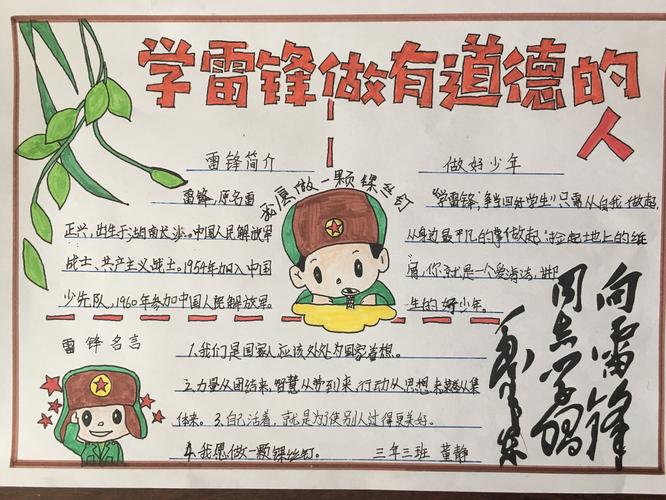 学雷锋做有道德的
人
雷锋简介
雷锋,原名雷
正兴,出生于湖南长沙。中国人民解放军
战士、共产主义战士。1954年加入中国
少先队,1960年参加中国人民解放军。
我愿做一颗螺丝钉
做好少年
"学雷锋,争当四好学生"只需从自我做起,
从身边最平凡的事做起,捡起地上的纸
屑,你就是一个爱清洁,讲卫
生的好少年。
向雷锋
同志学习
毛泽东
雷锋名言
1.我们是国家人应该处处为国家着想。
2.力量从团结来,智慧从劳动来,行动从思想来,荣誉从集
体来。3.自己活着,就是为了使别人过得更美好。
4.我愿做一颗螺丝钉。
三年三班 董静